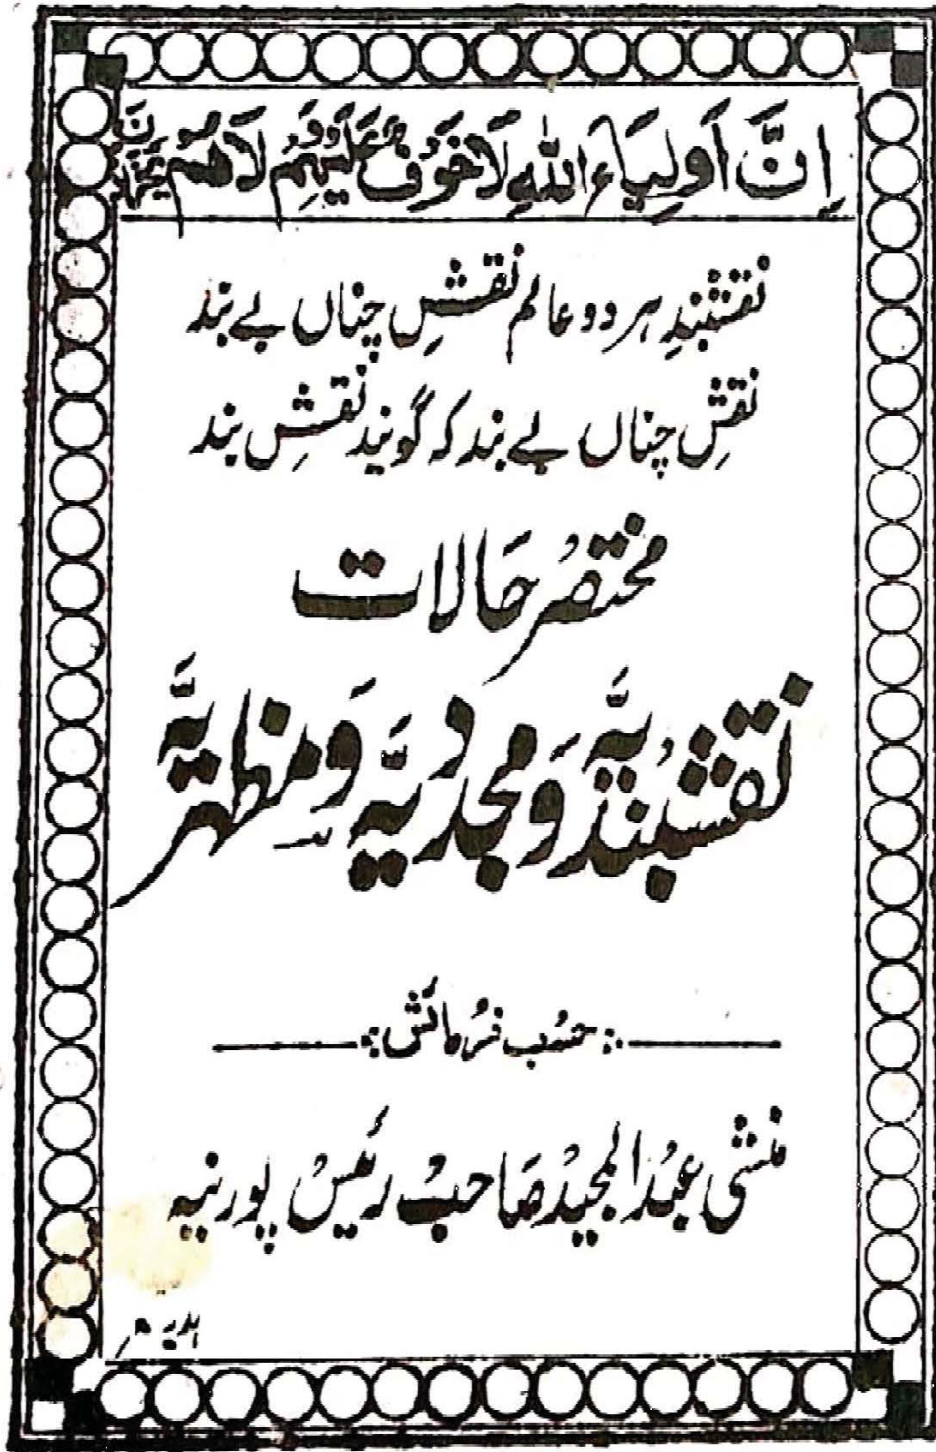 اِنَّ اَولِیَاءَ اللہِ لَا خَوْفٌ عَلَیْہِمْ وَلَا ھُمْ یَحْزَنُوْنَ
نقشبندِ ہر دو عالم نقشِ چناں بے بند
نقشِ چناں بے بند کہ گویند نقشِ بند
مختصر حَالات
نقشبُندیَّہ وَ مجدّدِیَّہ وَ مظہریَّہ
حسْبِ فرُمائش
منشی عبْدالمجیدْ صَاحبْ رئیسْ پورنیہ